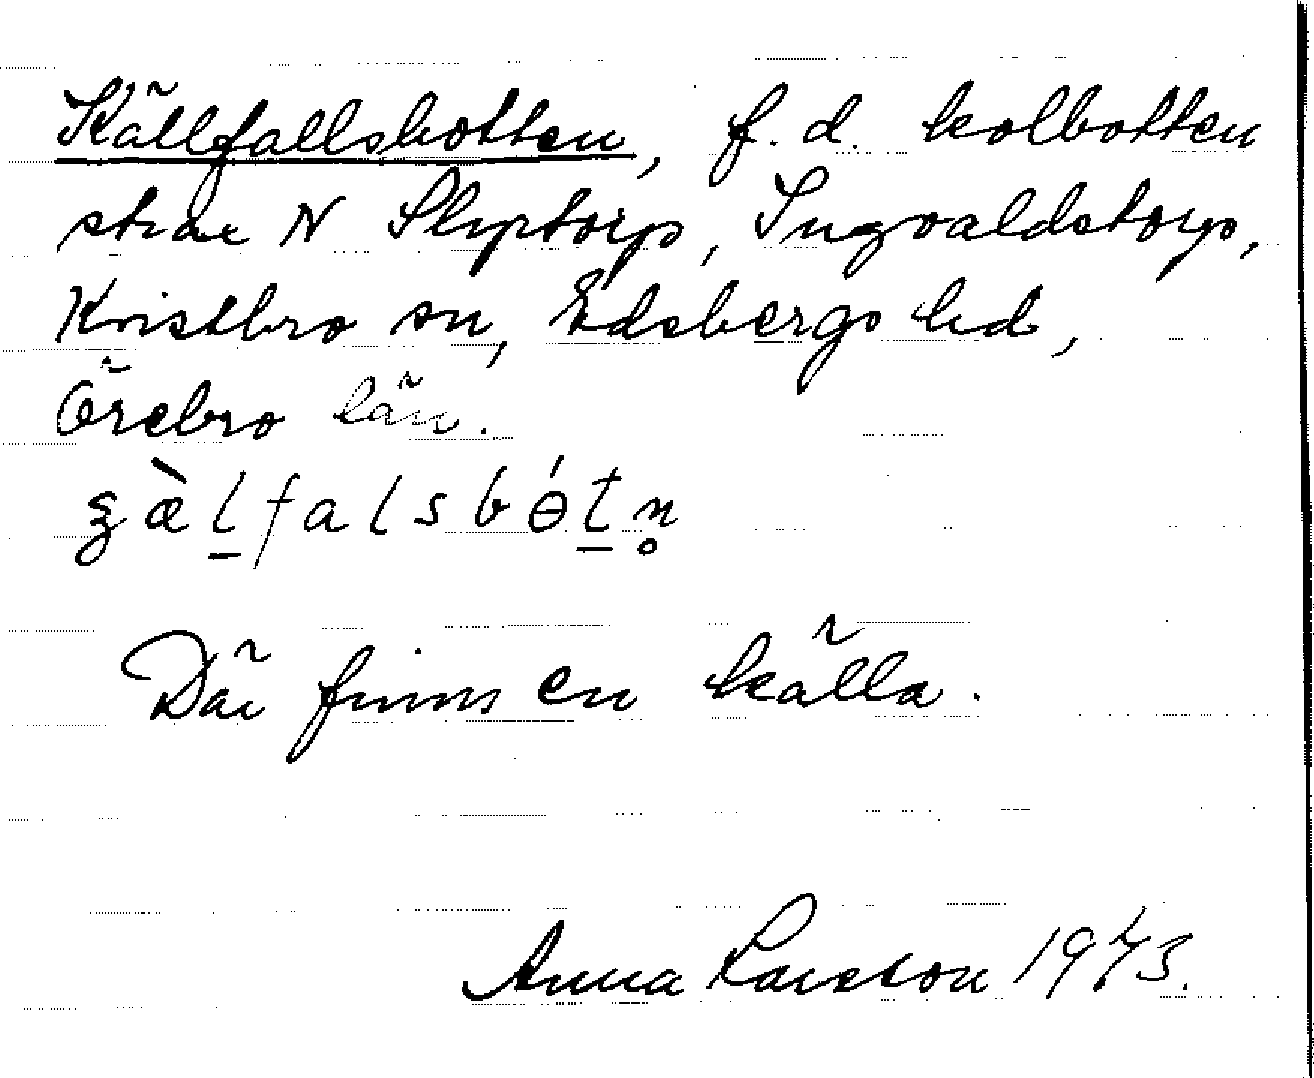 Källfallsbotten, f.d. kolbotten
strax N Slyptorp, Ingvaldstorp,
Kvistbro sn, Edsbergs hd,
Örebro län.
Där finns en källa.
Anna Larsson 1973.